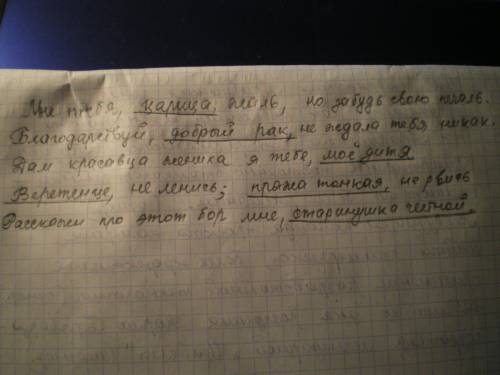 Мне тебя, калица, жаль, но забудь свою печаль.
Благодарствуй, добрый рак, не ждала тебя никак.
Дам красавца жениха я тебе, моё дитя
Веретенце, не ленись; пряжа тонкая, не рвись
Расскажи про этот бор мне, старинушка честной.